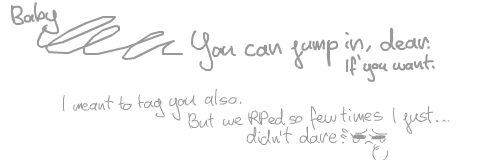 Baby
You can jump in, dear.
If you want.
I meant to tag you also.
But we RPed so few times I just...
didn't dare.